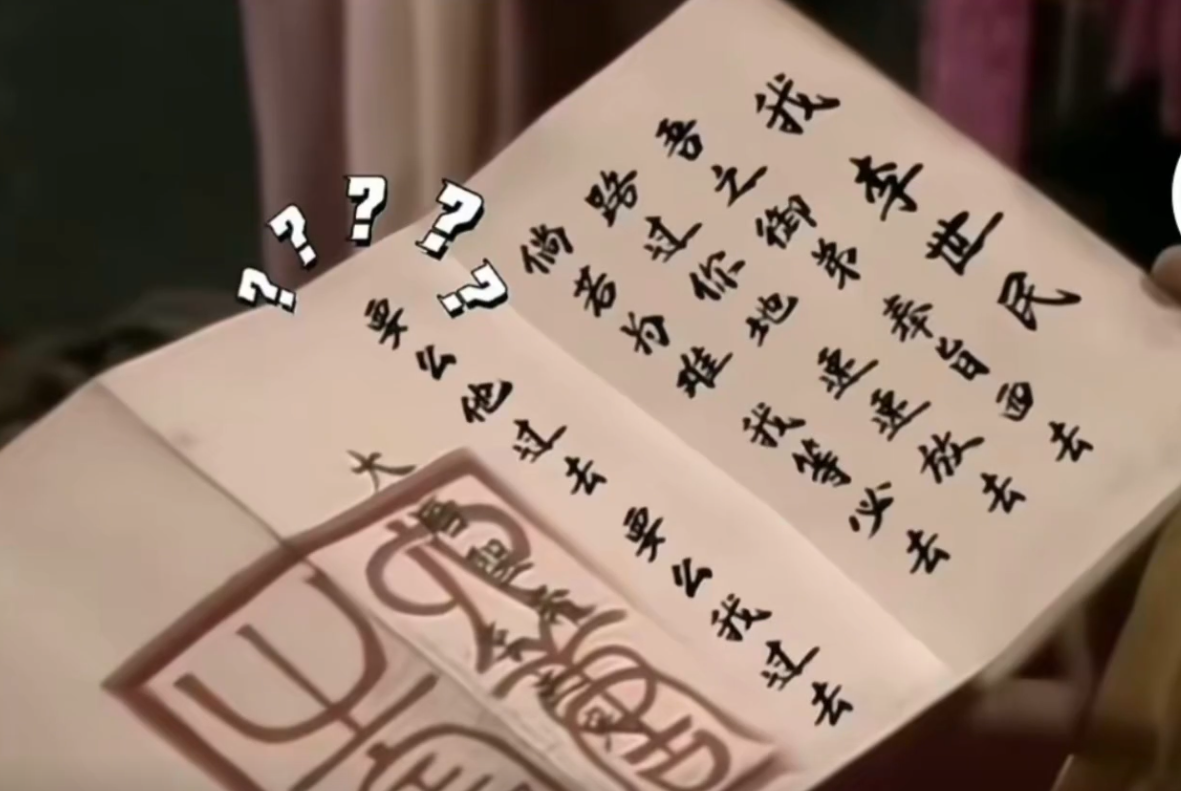 我李世民
吾之御弟 奉旨西去
路过你地 速速放去
倘若为难 我等必去
要么他过去 要么我过去
大
?????